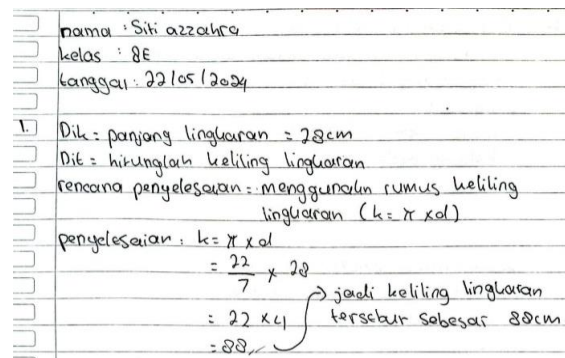 nama : Siti azzahra
kelas : 8E
tanggal : 22/05/2024
1. Dik : panjang lingkaran = 28cm
Dit = hitunglah keliling lingkaran
rencana penyelesaian : menggunakn rumus keliling
lingkaran (k = π x d)
penyelesaian : k = π x d
= 22/7 x 28
= 22 x 4
= 88,,
jadi keliling lingkaran
tersebut sebesar 88cm